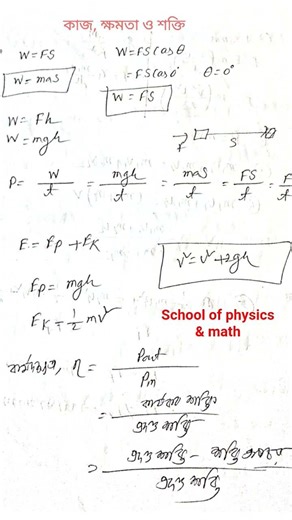 কাজ, ক্ষমতা ও শক্তি
W = FS
W = FS Cos θ
W = mas
= FS Cos 0° θ = 0°
W = FS
W = Fh
W = mgh
F S
P = W/t = mgh/t = mas/t = FS/t = F
E = Ep + EK
v² = v² + 2gh
Ep = mgh
EK = 1/2 mv²
School of physics
& math
কার্যদক্ষতা, η = Pout / Pin
= কার্যকর শক্তি / প্রদত্ত শক্তি
= প্রদত্ত শক্তি - শক্তি অপচয় / প্রদত্ত শক্তি